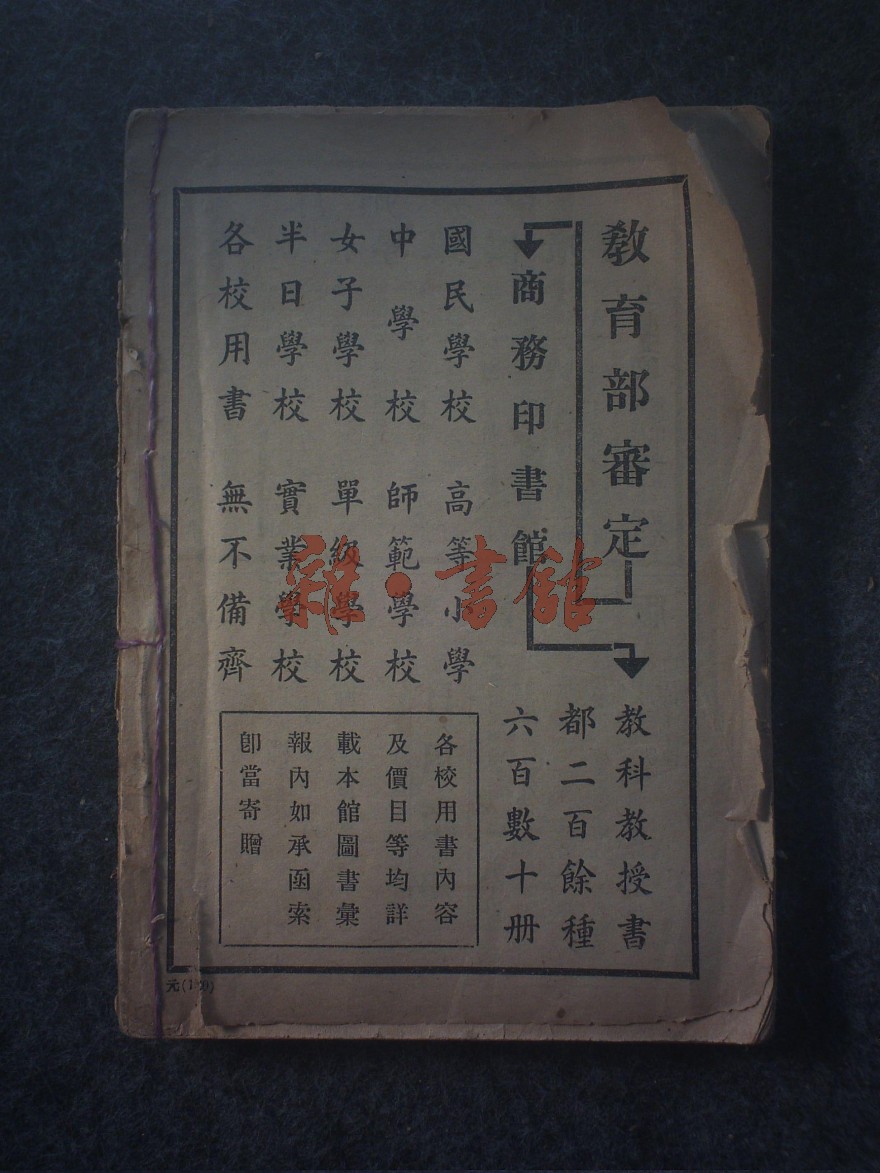 教育部審定
商務印書館
教科教授書
都二百餘種
六百數十册
國民學校 高等小學
中學校 師範學校
女子學校 單級學校
半日學校 實業學校
各校用書 無不備齊
各校用書內容
及價目等均詳
載本館圖書彙
報內如承函索
卽當寄贈
雜·書館